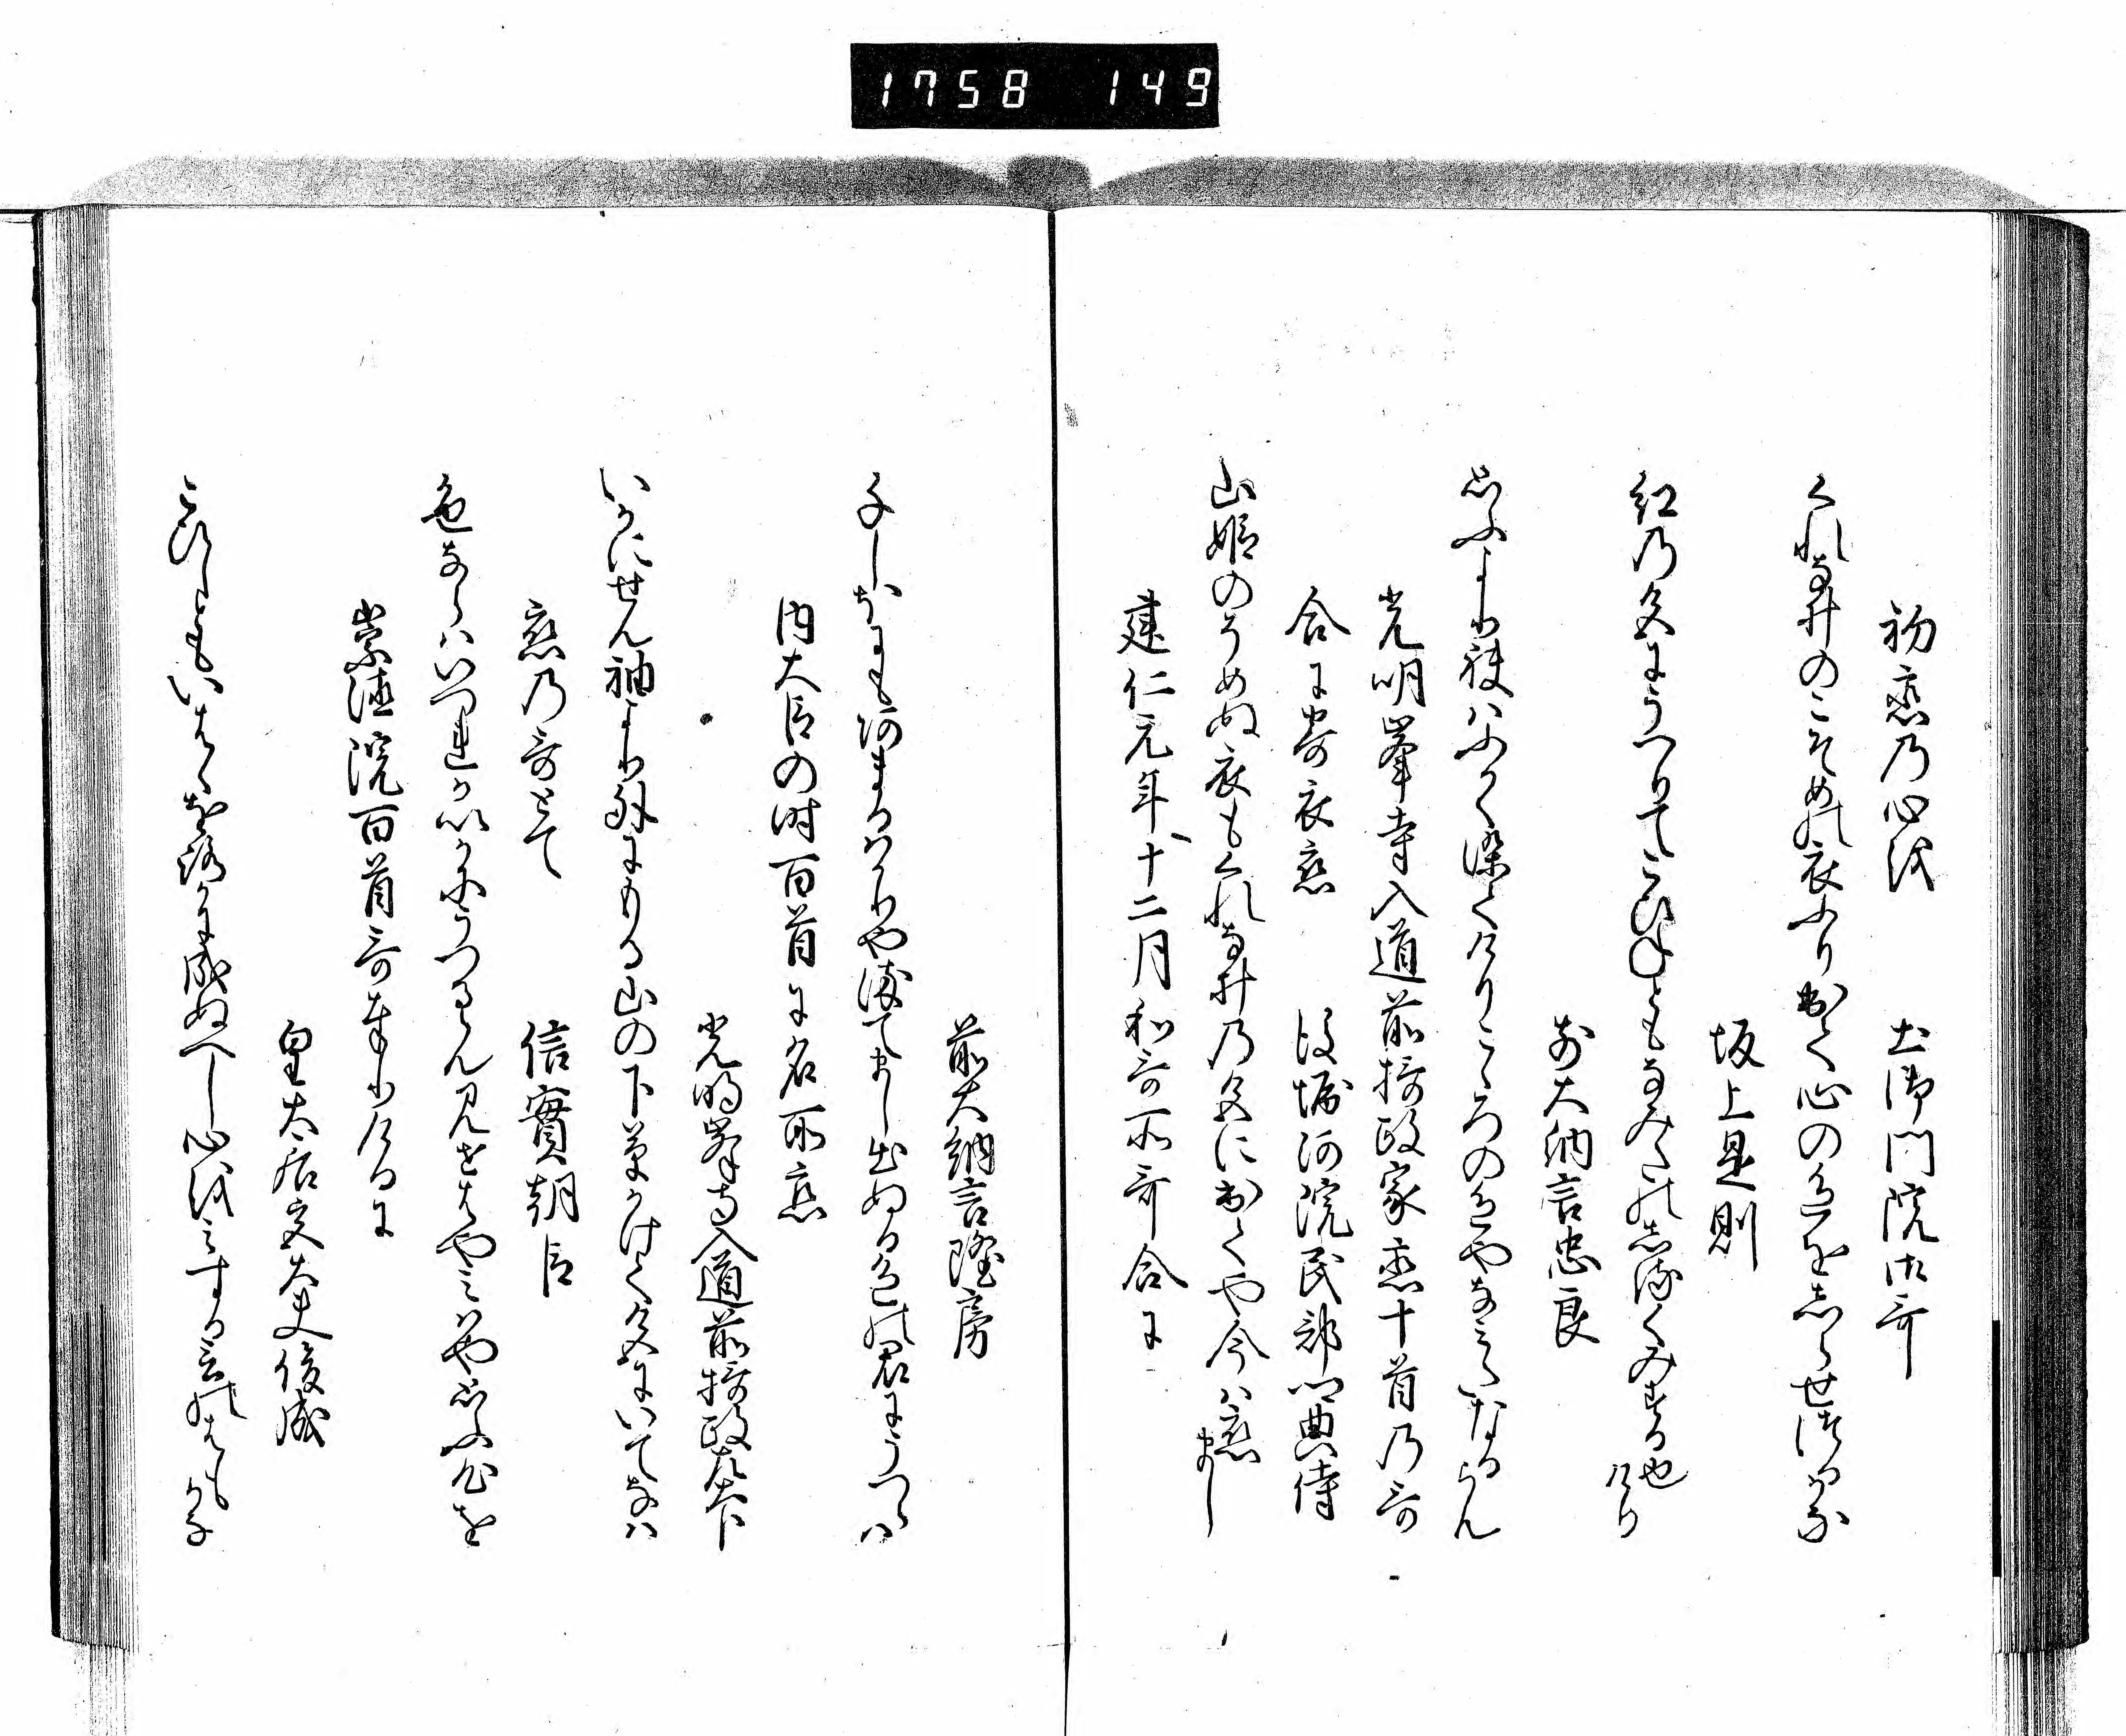 1758 149
初恋乃心を 土御門院御哥
くれなゐのこそめの衣ふりいてゝ心の色を志らせつるかな
坂上是則
紅乃色にうつりてこひすともなみたの志るくみする也けり
前大納言忠良
思ふより袂はふかく染てけりこゝろの色やなみたなるらん
光明峯寺入道前摂政家恋十首乃哥
合に寄衣恋 後堀河院民部卿典侍
山姫のそめぬ衣もくれなゐ乃色にいてゝや今は恋まし
建仁元年十二月和哥所哥合に
前大納言隆房
千しほにもあまるはかりや染てまし出ぬる色の君にうつらは
内大臣の時百首に名所恋
光明峯寺入道前摂政左大臣
いかにせん袖より外にもる山の下葉かはく色にいてなは
恋乃哥とて 信實朝臣
色ならはいつれかいかにうつるらん見せはやみはや思ふ心を
崇徳院百首哥奉りけるに
皇太后宮大夫俊成
こひしともいはゝをろかに成ぬへし心をみする言のはもかな